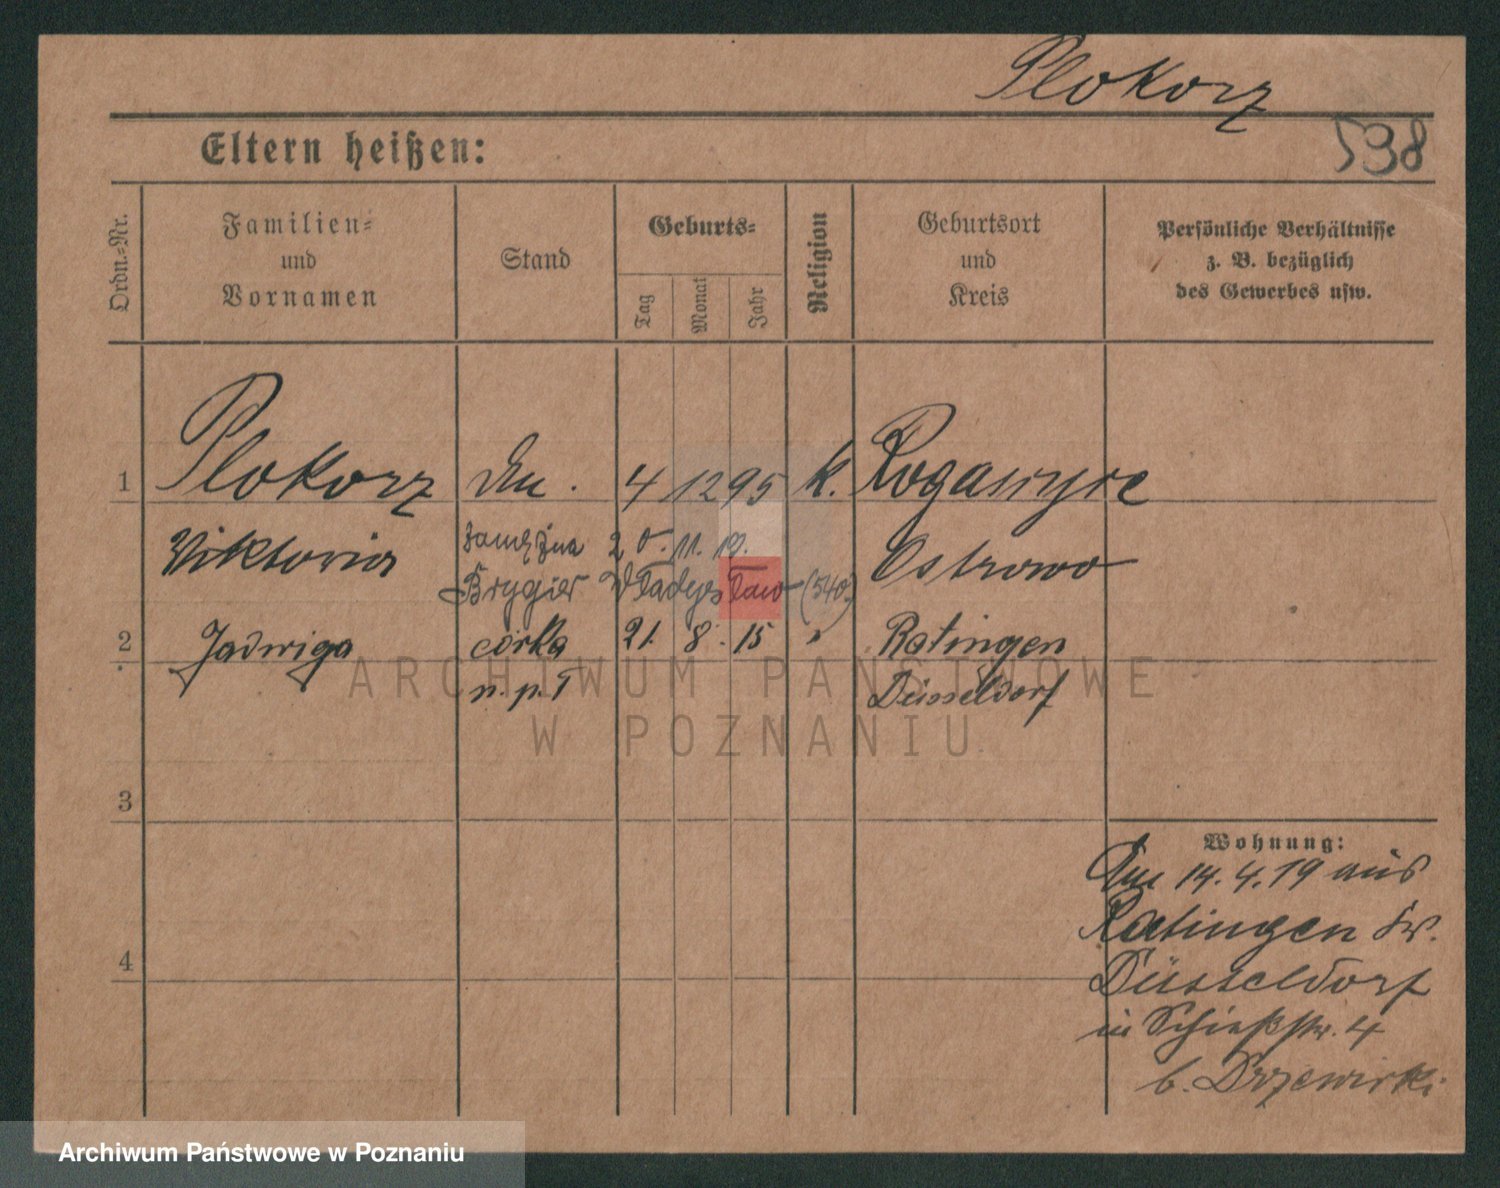 Plokorz
538
Eltern heißen:
Ordn.-Nr.
Familien-
und
Vornamen
Stand
Geburts-
Tag
Monat
Jahr
Religion
Geburtsort
und
Kreis
Persönliche Verhältnisse
z. B. bezüglich
des Gewerbes usw.
1 Plokorz 4 12 95 k.
Viktoria 20. 11. 19. Ostrowo
Brygier (540.)
2 Jadwiga córka 21. 8. 15 " Ratingen
n. p. T Düsseldorf
3
4
Wohnung:
Am 14.4.19 aus
Ratingen
Düsseldorf
in Schießstr. 4
b. Drzewiecki
ARCHIWUM PAŃSTWOWE
W POZNANIU
Archiwum Państwowe w Poznaniu